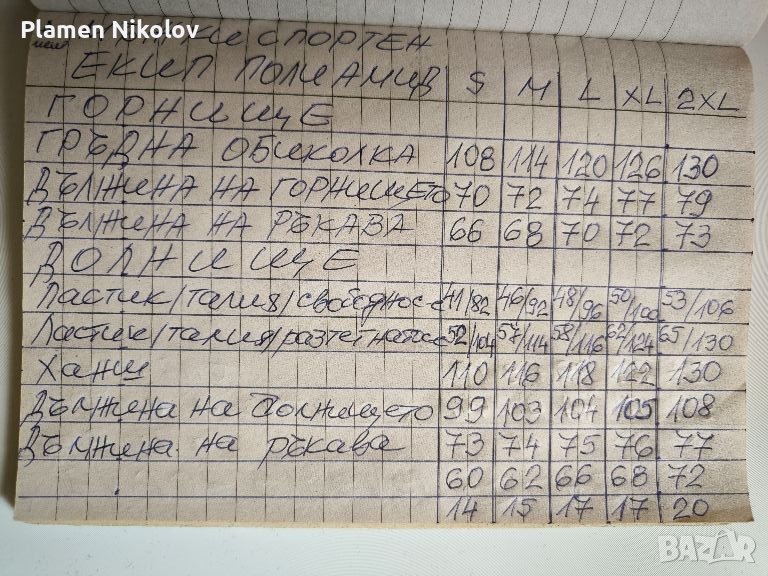 Plamen Nikolov
СПОРТЕН
ЕКИП ПОЛИАМИД S M L XL 2XL
ГОРНИЩЕ
ГРЪДНА ОБИКОЛКА 108 114 120 126 130
ДЪЛЖИНА НА ГОРНИЩЕТО 70 72 74 77 79
ДЪЛЖИНА НА РЪКАВА 66 68 70 72 73
ДОЛНИЩЕ
Ластик/талия/свободнос 41/82 46/92 48/96 50/100 53/106
Ластик/талия/разтегнатос 52/104 57/114 58/116 62/124 65/130
Ханш 110 116 118 122 130
Дължина на долнището 99 103 104 105 108
Дължина на ръкава 73 74 75 76 77
60 62 66 68 72
14 15 17 17 20
BAZAR